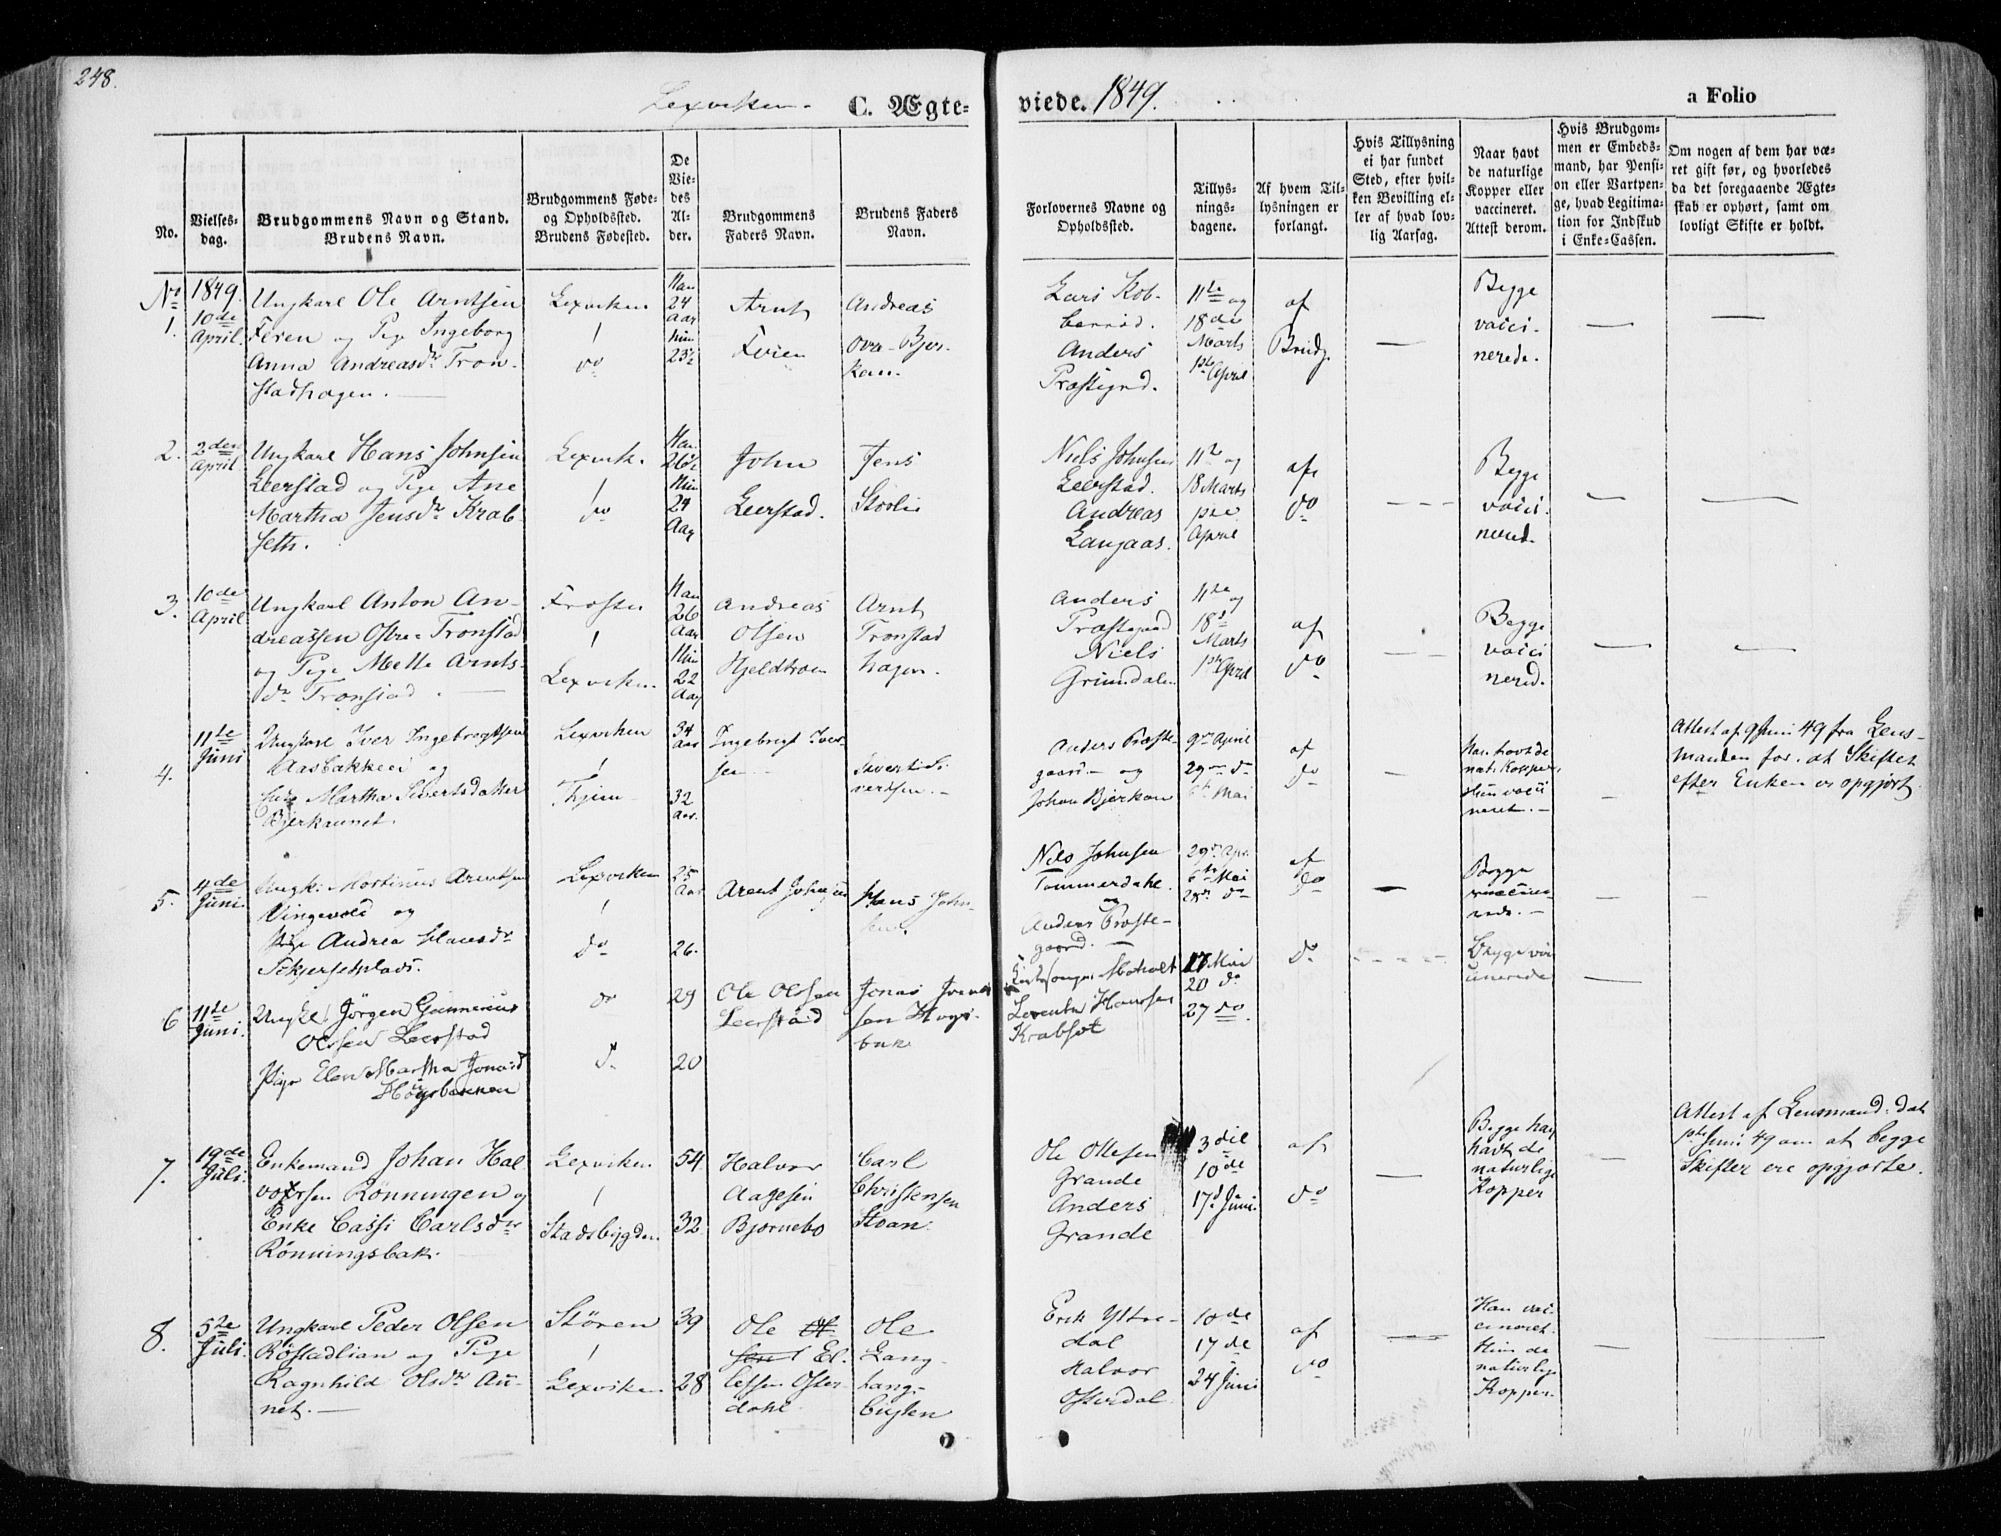 248.
Lexviken. C. Ægteviede. 1849. a Folio
No.
Vielsesdag.
Brudgommens Navn og Stand.
Brudens Navn.
Brudgommens Føde-
og Opholdssted.
Brudens Fødested.
De
Vie-
des
Al-
der.
Brudgommens
Faders Navn.
Brudens Faders
Navn.
Forlovernes Navne og
Opholdssted.
Tillys-
nings-
dagene.
Af hvem Til-
lysningen er
forlangt.
Hvis Tillysning
ei har fundet
Sted, efter hvil-
ken Bevilling el-
ler af hvad lov-
lig Aarsag.
Naar havt
de naturlige
Kopper eller
vaccineret.
Attest derom.
Hvis Brudgom-
men er Embeds-
mand, har Pensi-
on eller Vartpen-
ge, hvad Legitima-
tion for Indskud
i Enke-Cassen.
Om nogen af dem har væ-
ret gift før, og hvorledes
da det foregaaende Ægte-
skab er ophørt, samt om
lovligt Skifte er holdt.
No 1.
1849.
10de
April
Ungkarl Ole Arntsen
Feren og Pige Ingeborg
Anna Andreasdr Tron-
stadhagen.
Lexviken
/
do
Han
24
Aar
hun
23½
Arnt
Feren
Andreas
Øvre-Bjer-
kan.
Lars Kob-
berrød.
Anders
Præstegrd.
11te og
18de
Marts
1ste April
af
Brudg.
Begge
vacci-
nerede.
2.
2den
April
Ungkarl Hans Johnsen
Leerstad og Pige Ane
Martha Jensdr Krab-
seth.
Lexvik.
/
do
Han
26½
Hun
24
Aar
John
Leerstad.
Jens
Stovli
Niels Johnsen
Leerstad.
Andreas
Langaas.
11te og
18 Marts
April
af
do
Begge
vacci-
nered.
3.
10de
April
Ungkarl Anton An-
dreassen Østre-Tronstad
og Pige Mette Arnts-
dr Tronstad
Frosten
/
Lexviken.
Han
26
Aar
Hun
22
Aar
Andreas
Olsen
Hjeldtroen
Arnt
Tronstad
hagen.
Anders
Præstegaard
Niels
Grundalen
11te og
18de
Marts
1ste April
af
do
Begge
vacci
nered.
4.
11te
Juni
Ungkarl Iver Ingebregtsen
Aasbakken og
Martha Sivertsdatter
Bjerkaunet.
Lexviken
/
34
Aar
32
Aar.
Ingebregt Iver-
sen
Sivert Si-
vertsen.
Anders Præste-
gaard og
Johan Bjerkan
29de April
29de do
6te Mai
af
do
Han havt de
nat. Kopper,
Hun vacci
neret.
Attest af 9 Juni 49 fra Lens-
manden for at Skiftet
efter Enken er opgjort.
5.
4de
Juni.
Ungk: Mortinus Arentsen
Vingevold og
Pige Andrea Hansdr
Lexviken
/
do
25
Aar
26.
Arent Johnsen
Hans John-
sen.
Nils Johnsen
Tømmerdahl.
og
Anders Præste-
gaard.
29de Apr.
6te Mai
28de do
af
do
Begge
vaccine-
rede.
6
11te
Juni.
Ungkl Jørgen Gunnerius
Olsen Leerstad
Pige Elen Martha Jonasd
Høgsbakken
do
/
do
29
20
Ole Olsen
Leerstad
Jonas Jonas
sen Høgs-
bak
Kirkesanger Moholt
Leventin Hansen
Krabset
17 Mai
20 do
27 do
do
Begge vac
cinerede
7.
19de
Juli.
Enkemand Johan Hal
vorsen Rönningen og
Enke Cassi Carlsdtr
Rönningsbak.
Lexviken
/
Stadsbygden.
54
32
Halvor
Aagesen
Bjørnebo
Carl
Christensen
Stoan.
Ole Ottesen
Grande
Anders
Grande
3die
10de
17d Juni.
af
do
Begge hav
havt de
naturlige
Kopper
Attest af Lensmand: dat
1ste Juni 49 om at begge
Skifter ere opgjorte.
8.
5te
Juli.
Ungkarl Peder Olsen
Röstadlian og Pige
Ragnhild Olsdr Au-
net.
Stören
/
Lexviken
39
28
Ole Ol
sen El-
lefsen Øster-
dahl
Ole
Lang-
hang-
Erik Yttre-
dal
Halvor
Østerdal
10de
17de
24 Juni
af
do
Han vac-
cineret
Hun de
naturlige
Kopper.